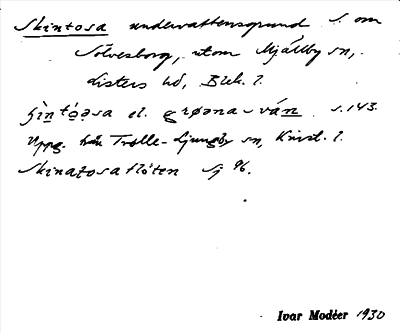 Skintosa undervattensgrund S. om
Sölvesborg, utom Mjällby sn,
Listers hd, Blek. l.
el. s. 143.
Uppg. från Trolle-Ljungby sn, Krist. l.
Skinatosaflöten Sj 96.
Ivar Modéer 1930